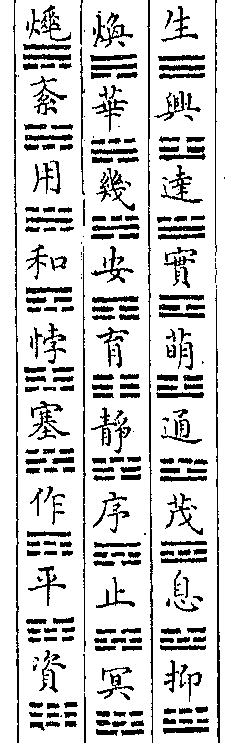 生興達實萌通茂息抑
煥華幾安育靜序止冥
紊用和悖塞作平資